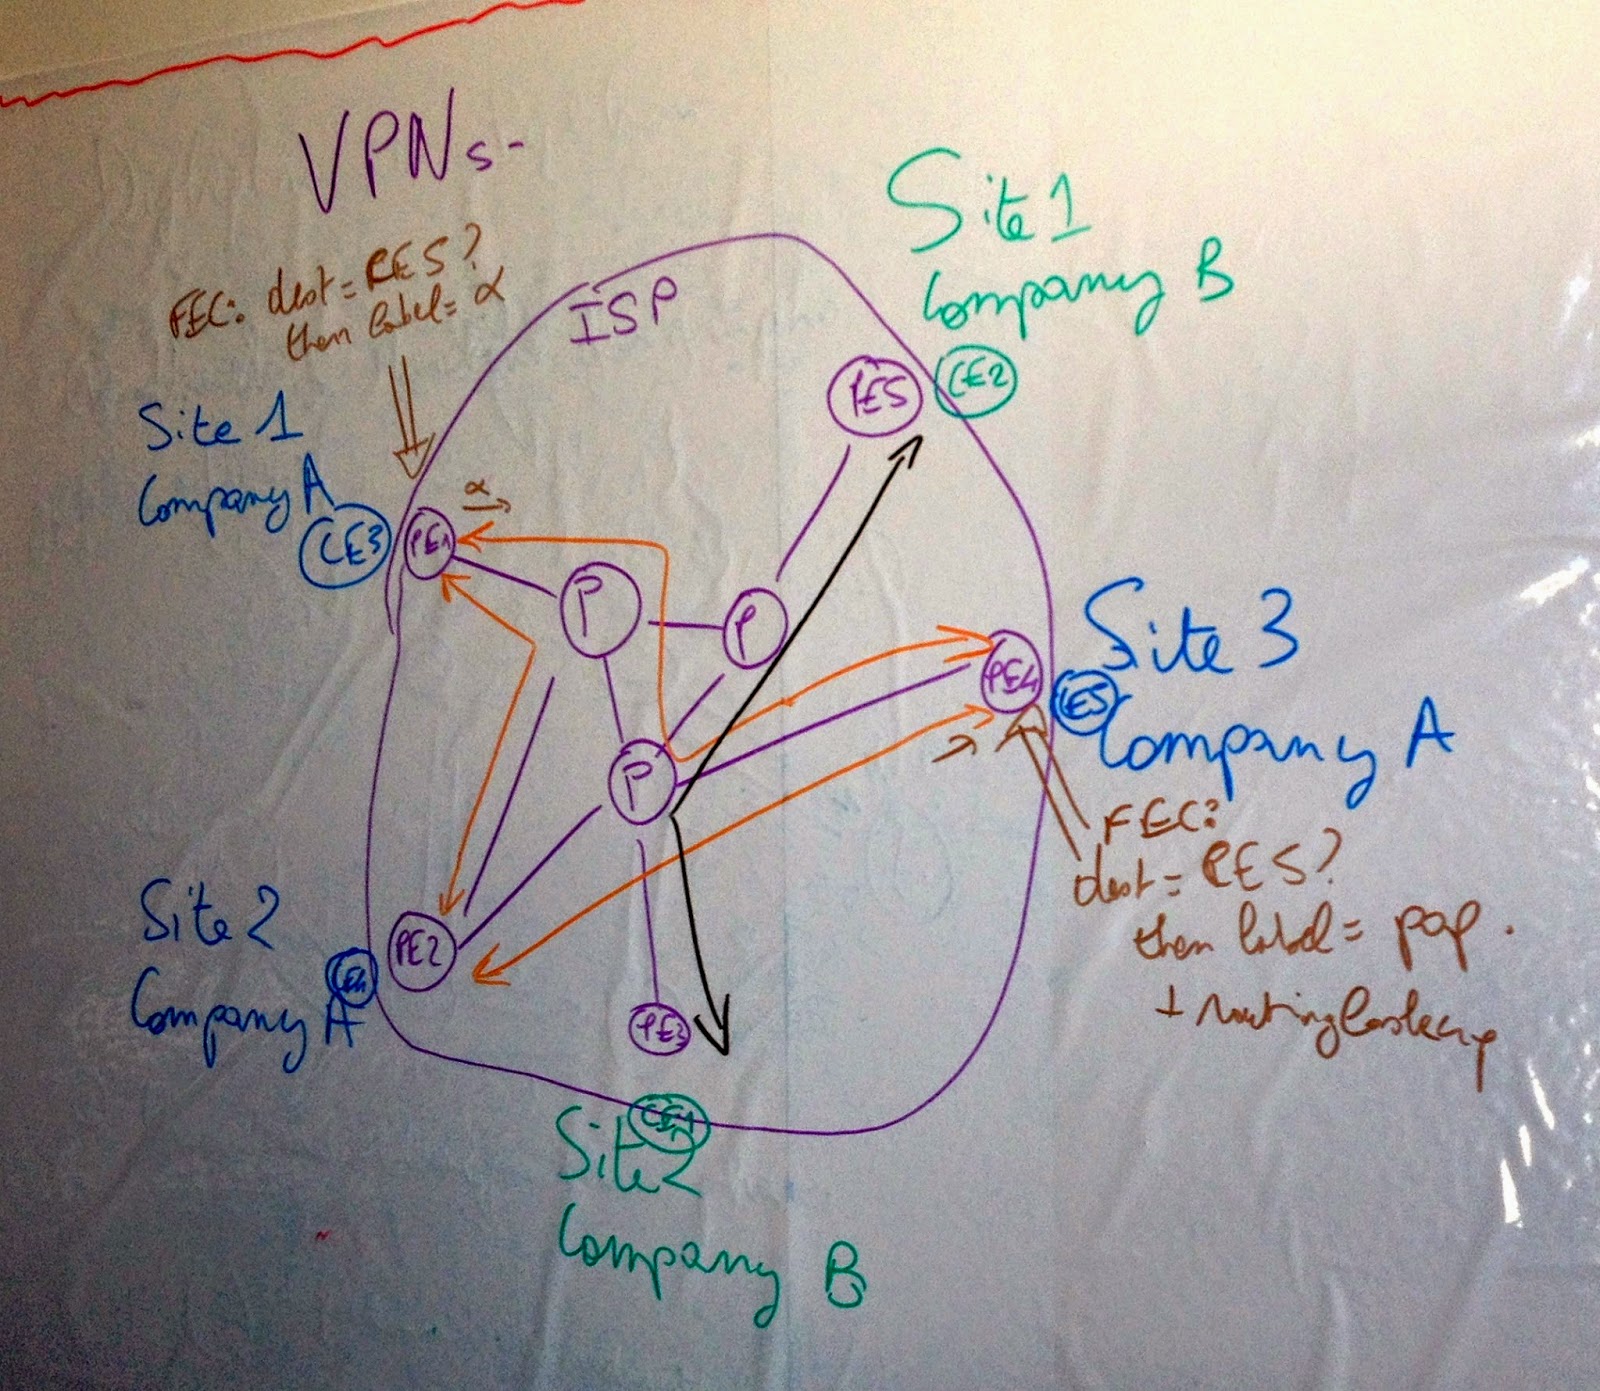 VPNs-
FEC: dest = CE5?
then label = α
ISP
Site 1
Company B
PE5
CE2
Site 1
Company A
CE3
PE1
α
P
P
P
PE4
CE5
Site 3
Company A
FEC:
dest = CE5?
then label = pop.
+ routing lookup
Site 2
Company A
CE4
PE2
PE3
CE1
Site 2
Company B